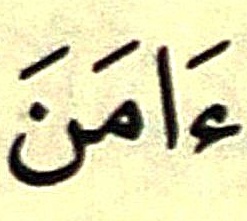 ءَامَنَ